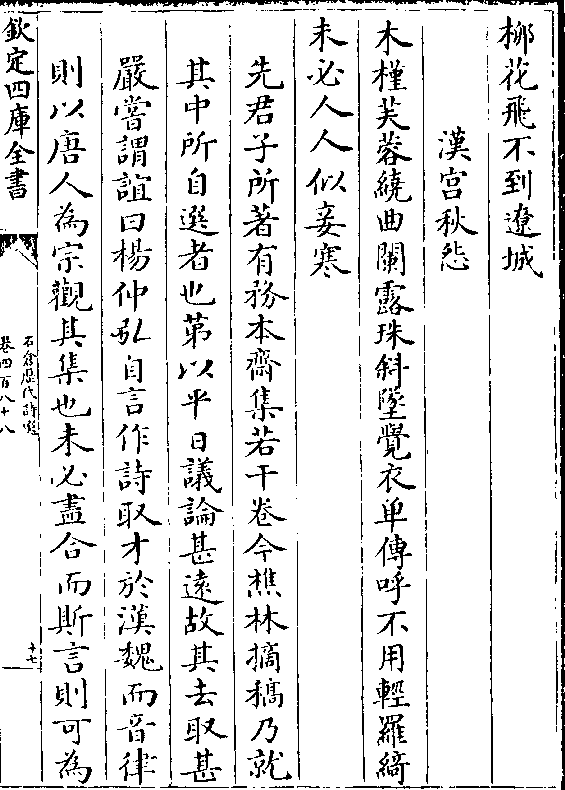 栁花飛不到遼城
漢宫秋怨
木槿芙蓉繞曲闌露珠斜墜覺衣单傳呼不用輕羅綺
未必人人似妾寒
先君子所著有務本齋集若干卷今樵林摘稿乃就
其中所自選者也第以平日議論甚遠故其去取甚
嚴嘗謂誼曰楊仲弘自言作詩取才於漢魏而音律
則以唐人為宗觀其集也未必盡合而斯言則可為
欽定四庫全書
石倉歴代詩選
卷四百八十八
十七